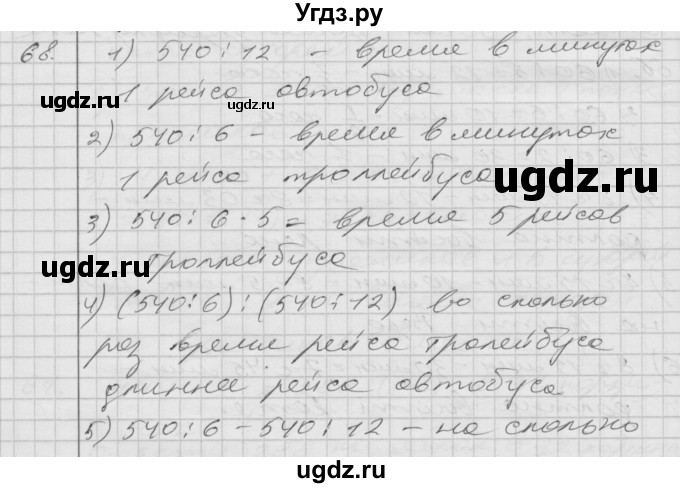 Угдз.ру
68. 1) 540 : 12 – время в минутах
1 рейса автобуса
2) 540 : 6 – время в минутах
1 рейса троллейбуса
3) 540 : 6 · 5 = время 5 рейсов
троллейбуса
4) (540 : 6) : (540 : 12) во сколько
раз время рейса тролейбуса
длинна рейса автобуса
5) 540 : 6 – 540 : 12 – на сколько
ugdz.ru
ugdz.ru
ugdz.ru
ugdz.ru
ugdz.ru
ugdz.ru
ugdz.ru